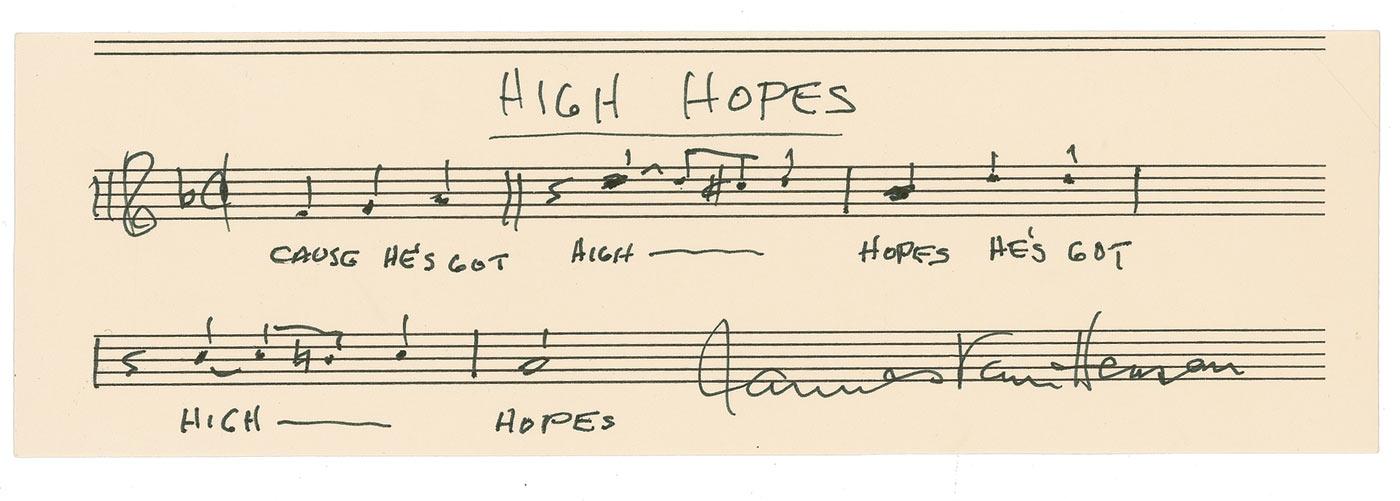 HIGH HOPES
CAUSE HE'S GOT HIGH — HOPES HE'S GOT
HIGH — HOPES
James Van Heusen